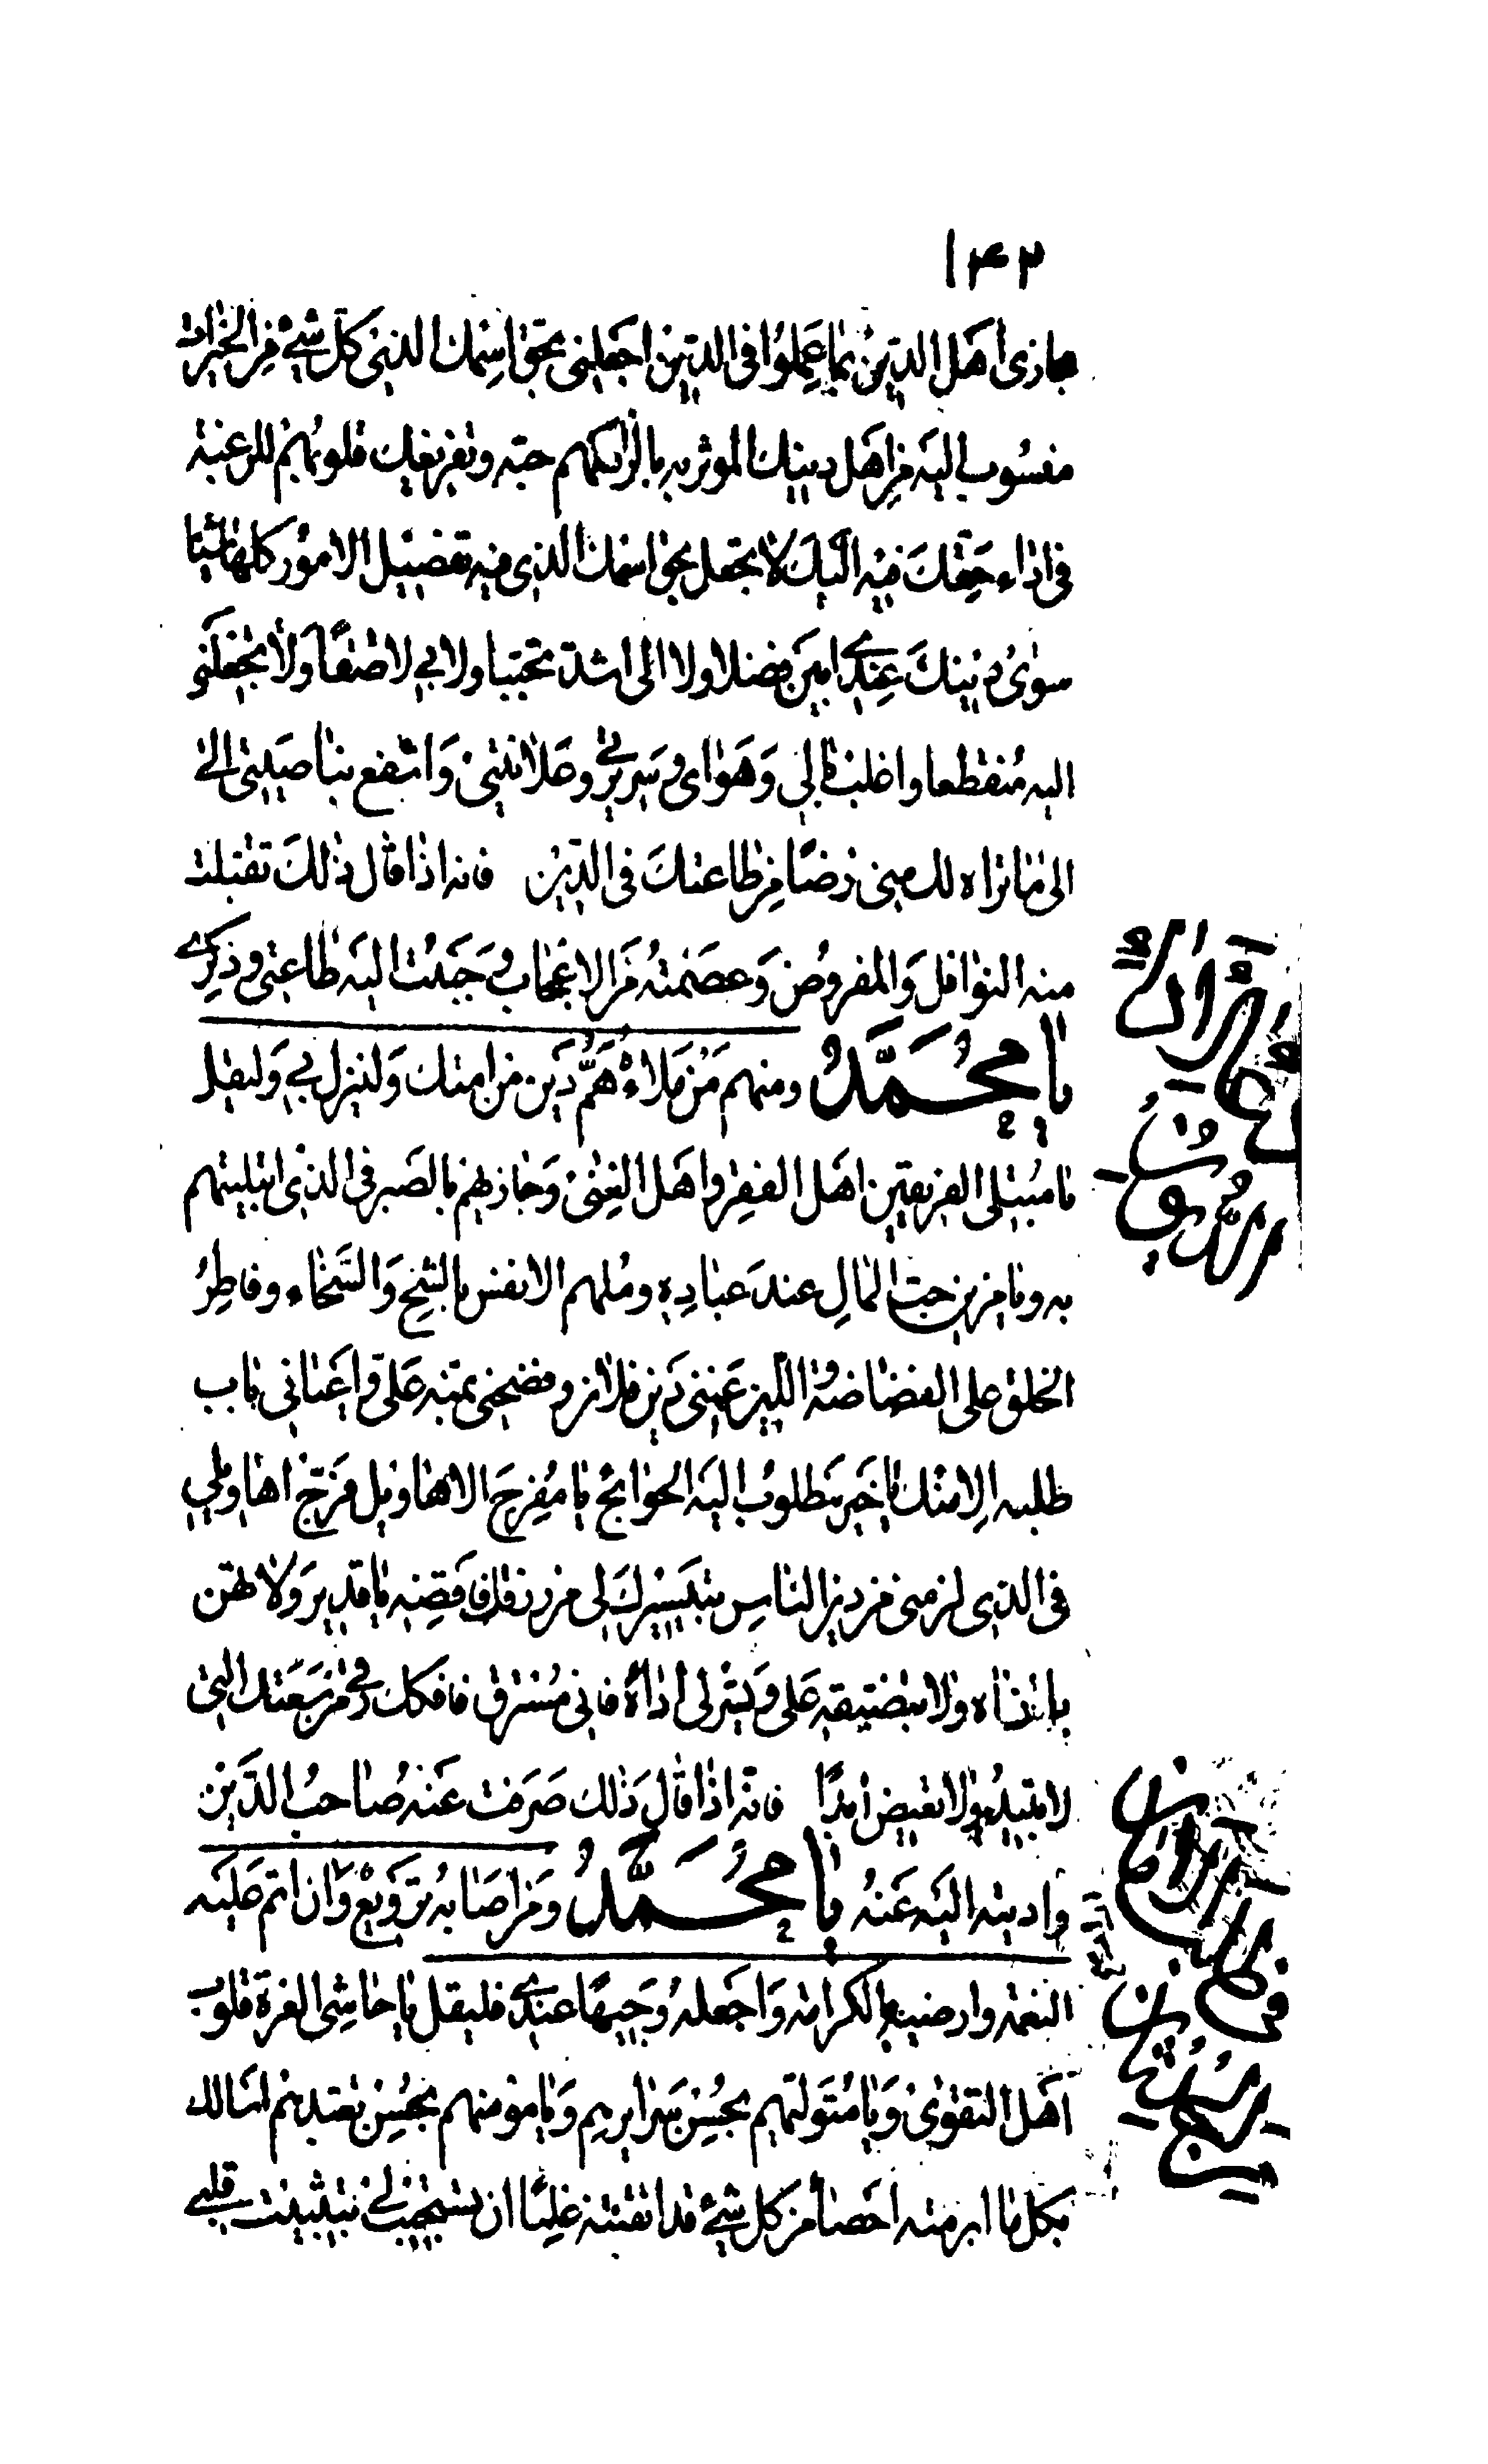 ۱۴۳
جازى اهل الدّين بما عملوا فى الدّين اجعلنى بحقّ اسمك الذى كلّ شىء من الخيرات
منسوب اليه من اهل دينك المؤثر به بالزامكهم حبّه و تفريغك قلوبهم للرغبة
فى اداء حقّك فيه اليك لا تجعل بحق اسمك الذى فيه تفصيل الامور كلها شيئا
سوى دينك عندى ابين فضلا ولا الى اشد تحببا ولا بى لاصقًا ولا تجعلنى
اليه منقطعا و اغلب بالى و هواى و سريرتى و علانيتى و اسفع بناصيتى الى
الى ما تراه لك منى رضًا من طاعتك فى الدّين فانه اذا قال ذلك تقبلت
منه النوافل و المفروض و عصمته من الاعجاب و حببت اليه طاعتى و ذكرى
يا محمّد و منهم من ملاءه همّ دين من امتك و لينزل بى و ليقل
يا مبتلى الفريقين اهل الفقر و اهل الغنى و جازيهم بالصبر فى الذى ابتليتهم
به و يا مزين حبّ المال عند عباده و ملهم الانفس بالشح و السّخاء و فاطر
الخلق على الفضاضة و اللين غمنى دين فلان و فضحنى بمنه علىّ و اعيانى باب
طلبه الا منك يا خير مطلوب اليه الحوائج يا مفرج الاهاويل فرّج اهاويلى
فى الذى لزمنى من دين الناس بتيسيرك لى من رزقك فاقضه يا قدير و لا تهنى
باذاه و لا بتضييقه على و يسّر لى اداه فانى مسترق فافكك رقى من سعتك التى
لا تبيد و لا تغيض ابدًا فانه اذا قال ذلك صرفت عنه صاحب الدّين
و اديته اليه عنه يا محمّد و من اصابه ترويع و ان اتم عليه
النعمة و ارضيه بالكرامة و اجعله وجيهًا عندى فليقل يا حاشى العز قلوب
اهل التقوى و يا متوليهم بحسن سرائرهم و يا مؤمنهم بحسن تعبدهم اسالك
بكل ما ابرمته احصاء من كل شىء قد اتقنته علمًا ان تستجيب لى بتثبيت قلبى